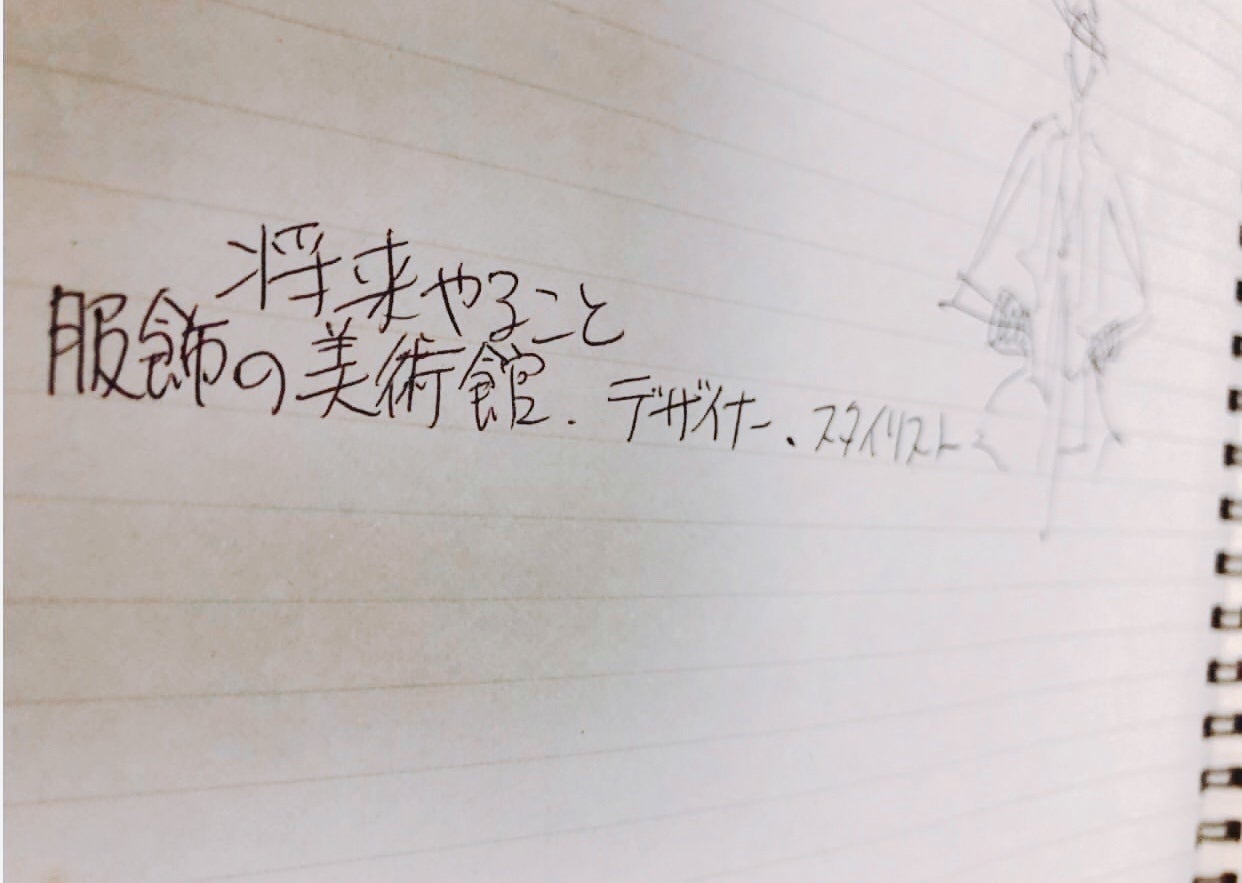 将来やること
服飾の美術館.デザイナー、スタイリスト